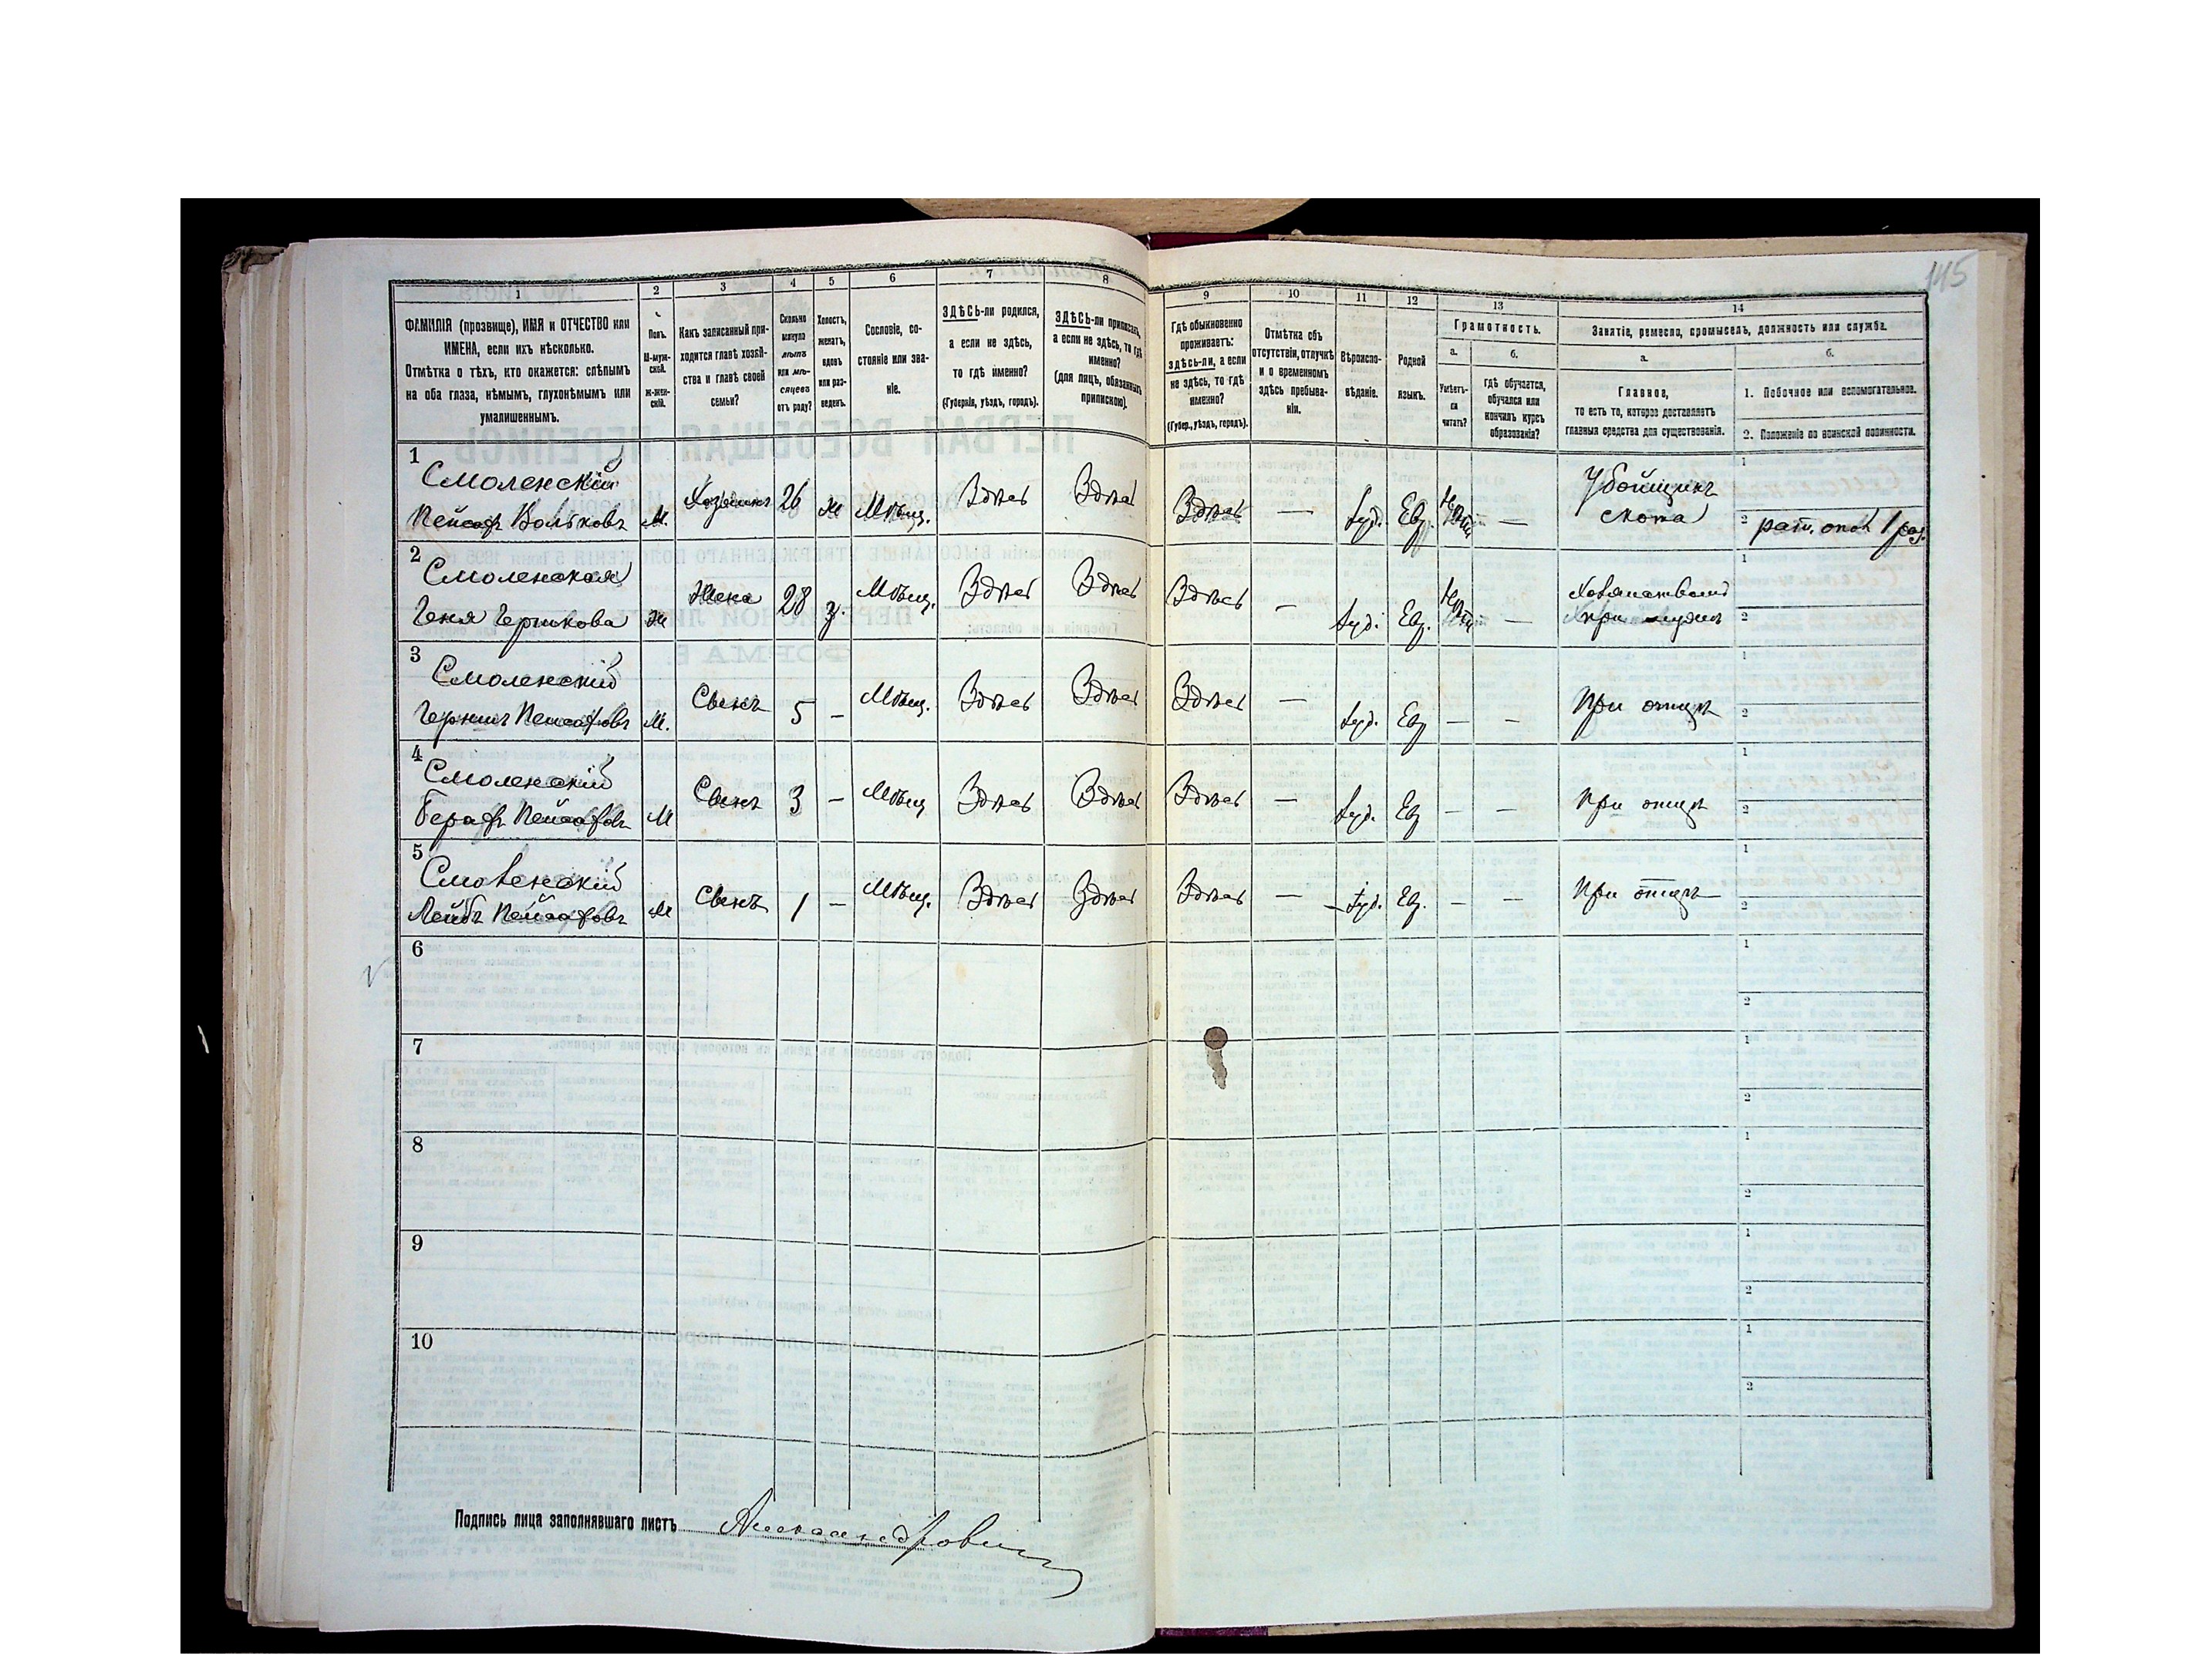 145
1 2 3 4 5 6 7 8 9 10 11 12 13 14
ФАМИЛІЯ (прозвище), ИМЯ и ОТЧЕСТВО или
ИМЕНА, если ихъ нѣсколько.
Отмѣтка о тѣхъ, кто окажется: слѣпымъ
на оба глаза, нѣмымъ, глухонѣмымъ или
умалишеннымъ.
Полъ.
М-муж-
ской.
Ж-жен-
скій.
Какъ записанный при-
ходится главѣ хозяй-
ства и главѣ своей
семьи?
Сколько
минуло
лѣтъ
или мѣ-
сяцевъ
отъ роду?
Холостъ,
женатъ,
вдовъ
или раз-
веденъ.
Сословіе, со-
стояніе или зва-
ніе.
ЗДѢСЬ-ли родился,
а если не здѣсь,
то гдѣ именно?
(Губернія, уѣздъ, городъ).
ЗДѢСЬ-ли приписанъ,
а если не здѣсь, то гдѣ
именно?
(для лицъ, обязанныхъ
припискою).
Гдѣ обыкновенно
проживаетъ:
здѣсь-ли, а если
не здѣсь, то гдѣ
именно?
(Губер., уѣздъ, городъ).
Отмѣтка объ
отсутствіи, отлучкѣ
и о временномъ
здѣсь пребыва-
ніи.
Вѣроиспо-
вѣданіе.
Родной
языкъ.
Грамотность.
а.
Умѣетъ-
ли
читать?
б.
Гдѣ обучается,
обучался или
кончилъ курсъ
образованія?
Занятіе, ремесло, промыселъ, должность или служба.
а.
Главное,
то есть то, которое доставляетъ
главныя средства для существованія.
б.
1. Побочное или вспомогательное.
2. Положеніе по воинской повинности.
1
Смоленскій
Пейсахъ Вольковъ М. Хозяинъ 26 ж Мѣщ. Здѣсь Здѣсь Здѣсь — Іуд. Евр. Нѣтъ —
Убойщикъ
скота
1
2 рат. опол 1 раз.
2
Смоленская
Геня Гершкова Ж Жена 28 з. Мѣщ. Здѣсь Здѣсь Здѣсь — Іуд. Евр. Нѣтъ —
при мужѣ
1
2
3
Смоленскій
Гершъ Пейсаховъ М. Сынъ 5 — Мѣщ. Здѣсь Здѣсь Здѣсь — Іуд. Евр — — При отцѣ
1
2
4
Смоленскій
Пейсаховъ М Сынъ 3 — Мѣщ Здѣсь Здѣсь Здѣсь — Іуд. Евр — — При отцѣ
1
2
5
Смоленскій
Лейбъ Пейсаховъ М Сынъ 1 — Мѣщ. Здѣсь Здѣсь Здѣсь — Іуд. Евр. — — При отцѣ
1
2
6
1
2
7
1
2
8
1
2
9
1
2
10
1
2
Подпись лица заполнявшаго листъ Александровичъ